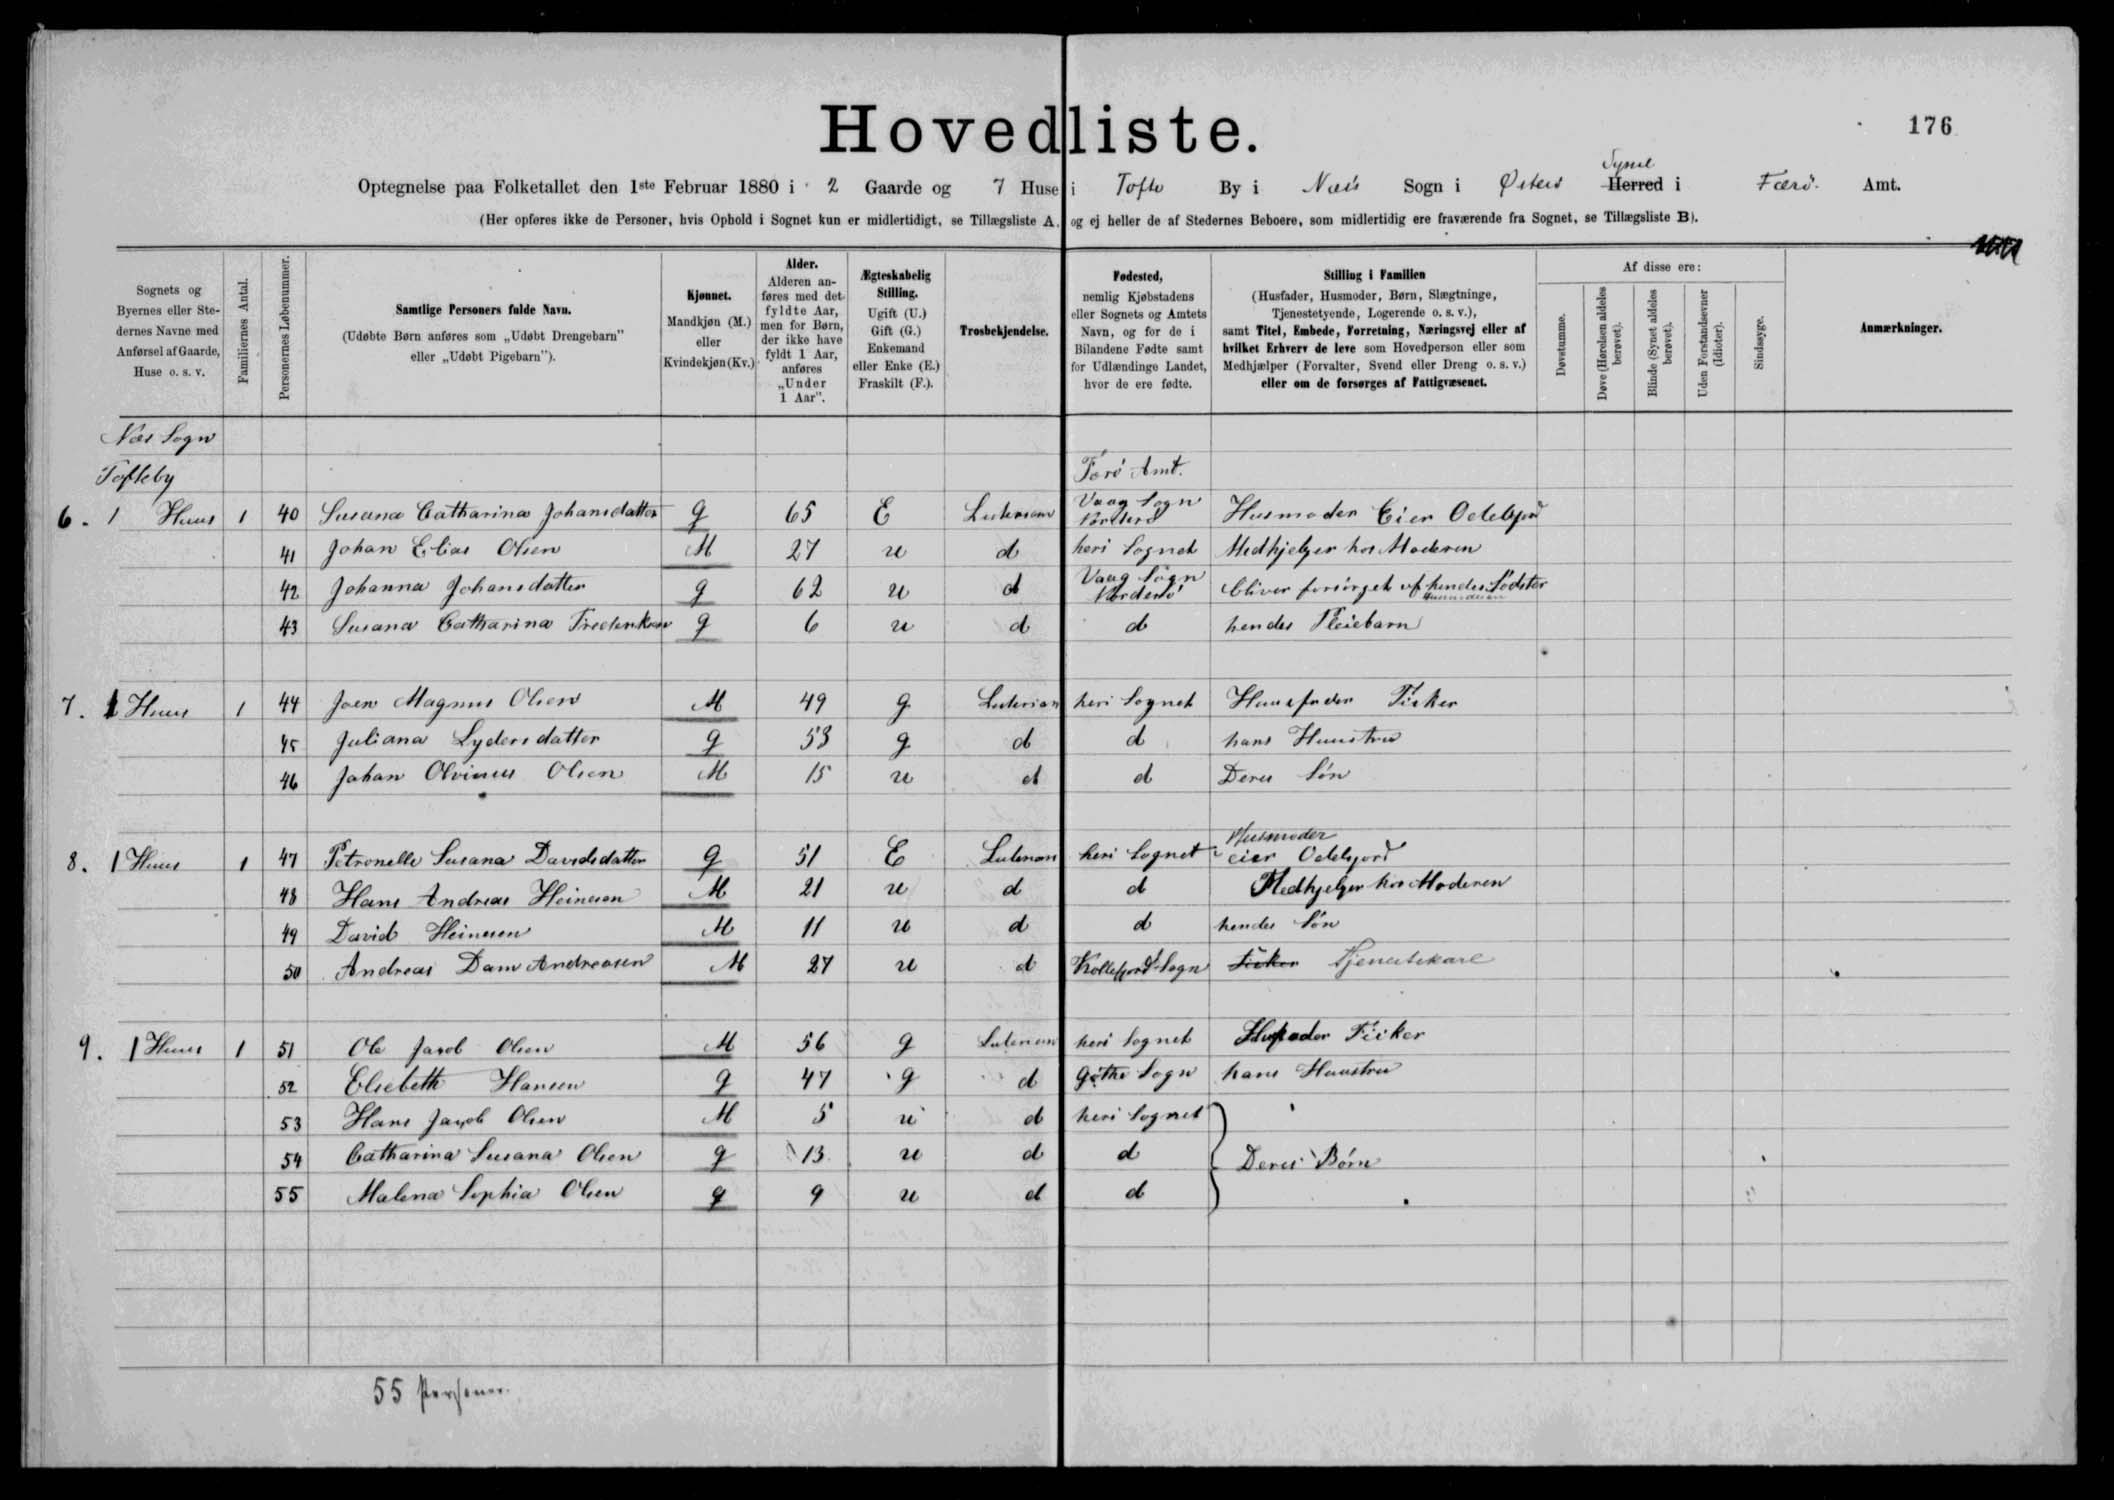 176
Hovedliste.
Optegnelse paa Folketallet den 1ste Februar 1880 i 2 Gaarde og 7 Huse i Tofte By i Næs Sogn i Østerø Syssel Herred i Færø Amt.
(Her opføres ikke de Personer, hvis Ophold i Sognet kun er midlertidigt, se Tillægsliste A, og ej heller de af Stedernes Beboere, som midlertidig ere fraværende fra Sognet, se Tillægsliste B).
Sognets og
Byernes eller Ste-
dernes Navne med
Anførsel af Gaarde,
Huse o. s. v.
Familiernes Antal.
Personernes Løbenummer.
Samtlige Personers fulde Navn.
(Udøbte Børn anføres som „Udøbt Drengebarn"
eller „Udøbt Pigebarn").
Kjønnet.
Mandkjøn (M.)
eller
Kvindekjøn (Kv.)
Alder.
Alderen an-
føres med det
fyldte Aar,
men for Børn,
der ikke have
fyldt 1 Aar,
anføres
„Under
1 Aar".
Ægteskabelig
Stilling.
Ugift (U.)
Gift (G.)
Enkemand
eller Enke (E.)
Fraskilt (F.).
Trosbekjendelse.
Fødested,
nemlig Kjøbstadens
eller Sognets og Amtets
Navn, og for de i
Bilandene Fødte samt
for Udlændinge Landet,
hvor de ere fødte.
Stilling i Familien
(Husfader, Husmoder, Børn, Slægtninge,
Tjenestetyende, Logerende o. s. v.),
samt Titel, Embede, Forretning, Næringsvej eller af
hvilket Erhverv de leve som Hovedperson eller som
Medhjælper (Forvalter, Svend eller Dreng o. s. v.)
eller om de forsørges af Fattigvæsenet.
Af disse ere:
Døvstumme.
Døve (Hørelsen aldeles
berøvet).
Blinde (Synet aldeles
berøvet).
Uden Forstandsevner
(Idioter).
Sindssyge.
Anmærkninger.
Næs Sogn
Tofteby Færö Amt.
6. 1 Huus 1 40 Susana Catharina Johansdatter q 65 E Luterian Vaag Sogn Norderö Husmoder Eier Odelsjord
41 Johan Elias Olsen M 27 u d heri Sognet Medhjelper hos Moderen
42 Johanna Johansdatter q 62 u d Vaag Sogn Norderö bliver forsörget af hendes Södster Husmoderen
43 Susana Catharina Frederiksen q 6 u d d hendes Pleiebarn
7. 1 Huus 1 44 Joen Magnus Olsen M 49 g Luterian heri Sognet Huusfader Fisker
45 Juliana Lydersdatter q 53 g d d hans Huustru
46 Johan Olvinus Olsen M 15 u d d Deres Sön
8. 1 Huus 1 47 Petronelle Susana Davidsdatter q 51 E Luterian heri Sognet Husmoder eier Odelsjord
48 Hans Andreas Heinesen M 21 u d d Medhjelper hos Moderen
49 David Heinesen M 11 u d d hendes Sön
50 Andreas Dam Andreasen M 27 u d Kollefjord Sogn Fisker Tjenestekarl
9. 1 Huus 1 51 Ole Jacob Olsen M 56 g Luterian heri Sognet Husfader Fisker
52 Elsebeth Hansen q 47 g d Göthe Sogn hans Huustru
53 Hans Jacob Olsen M 5 u d heri Sognet
54 Catharina Susana Olsen q 13 u d d Deres Börn
55 Malena Sophia Olsen q 9 u d d
55 Personer.